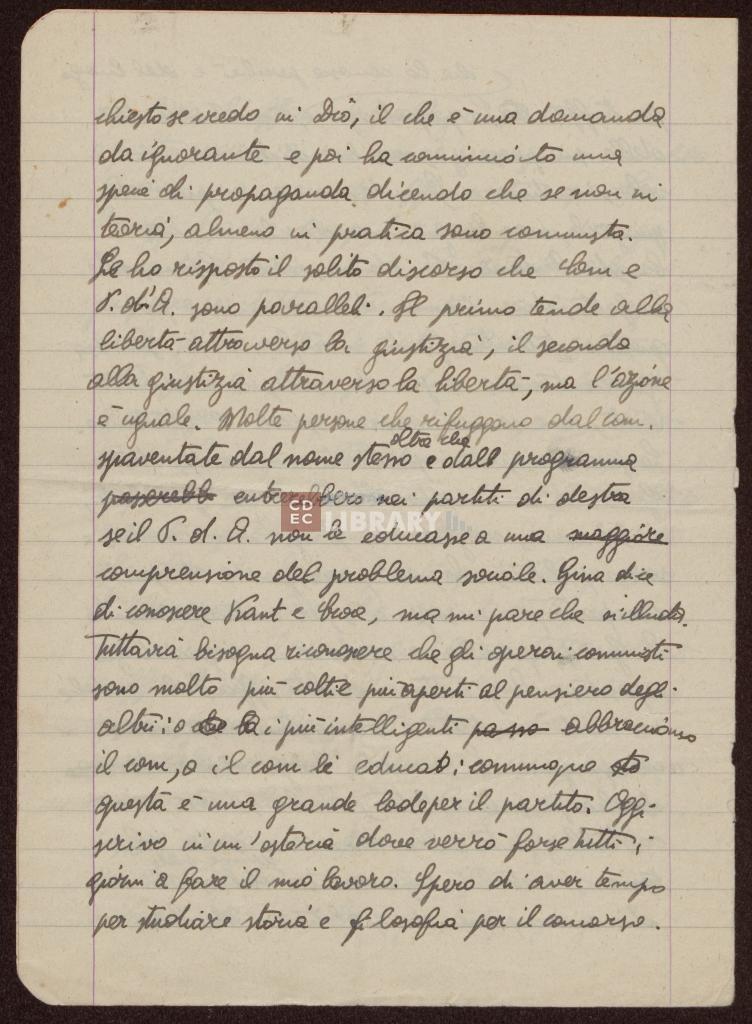 chiesto se credo in Dio, il che è una domanda
da ignorante e poi ha cominciato una
specie di propaganda dicendo che se non in
teoria, almeno in pratica sono comunista.
Le ho risposto il solito discorso che Com e
P. d'A. sono paralleli. Il primo tende alla
libertà attraverso la giustizia, il secondo
alla giustizia attraverso la libertà, ma l'azione
è uguale. Molte persone che rifuggono dal com.
oltre che
spaventate dal nome stesso e dall programma
passerebb entrerebbero nei partiti di destra
se il P. d. A. non le educasse a una maggiore
comprensione del problema sociale. Gina dice
di conoscere Kant e Croce, ma mi pare che si illuda.
Tuttavia bisogna riconoscere che gli operai comunisti
sono molto più colti e più aperti al pensiero degli
altri; o i più intelligenti passo abbracciano
il com, o il com li educa; comunque sto
questa è una grande lode per il partito. Oggi
scrivo in un'osteria dove verrò forse tutti i
giorni a fare il mio lavoro. Spero di aver tempo
per studiare storia e filosofia per il concorso.
CD
EC LIBRARY